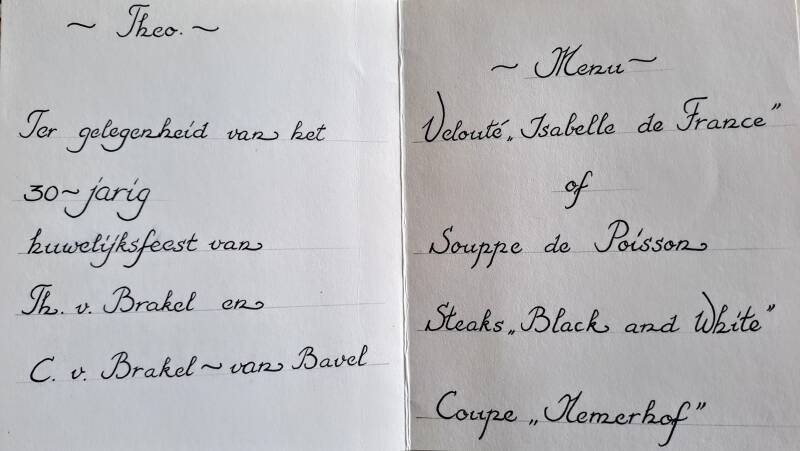 ~ Theo. ~
Ter gelegenheid van het
30~jarig
huwelijksfeest van
Th. v. Brakel en
C. v. Brakel ~ van Bavel
~ Menu ~
Velouté „Isabelle de France”
of
Souppe de Poisson
Steaks „Black and White”
Coupe „Nemerhof”